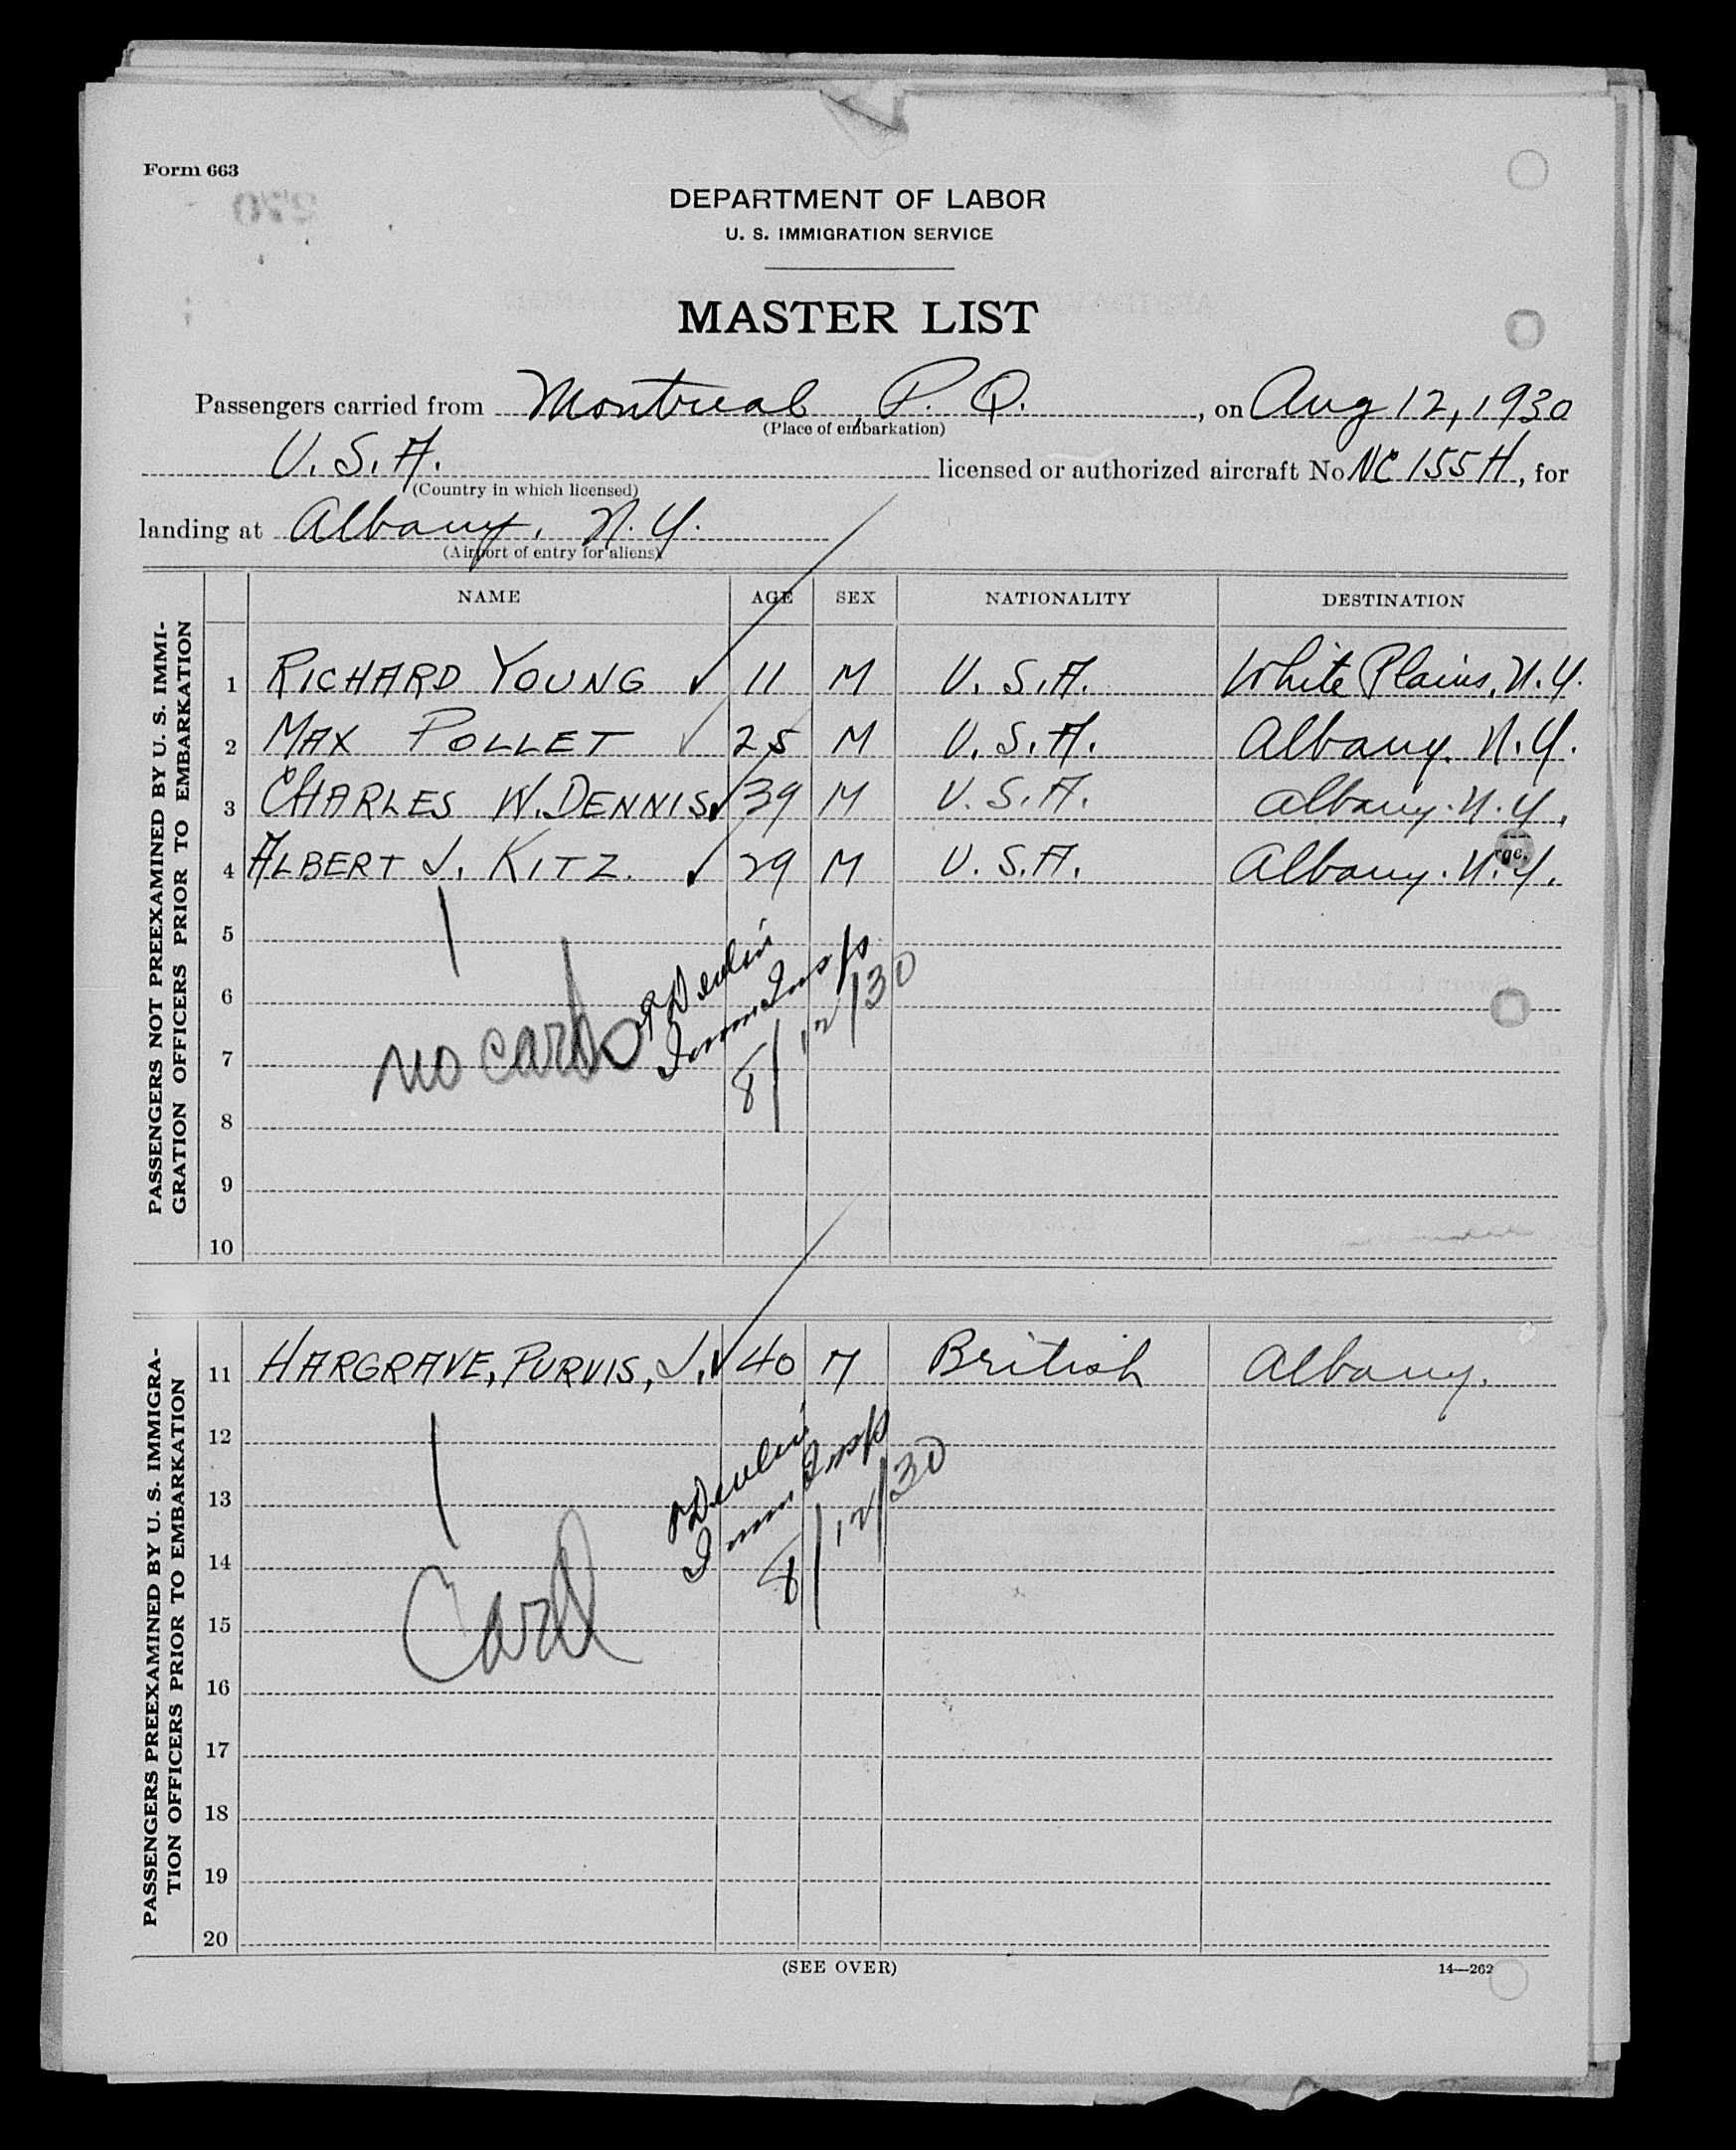 Form 663
DEPARTMENT OF LABOR
U. S. IMMIGRATION SERVICE
MASTER LIST
Passengers carried from Montreal, P. Q., on Aug 12, 1930
(Place of embarkation)
U. S. A. licensed or authorized aircraft No NC 155H, for
(Country in which licensed)
landing at Albany, N. Y.
(Airport of entry for aliens)
NAME AGE SEX NATIONALITY DESTINATION
PASSENGERS NOT PREEXAMINED BY U. S. IMMI-
GRATION OFFICERS PRIOR TO EMBARKATION
1 RICHARD YOUNG ✓ 11 M U. S. A. White Plains, N. Y.
2 MAX POLLET ✓ 25 M U. S. A. Albany. N. Y.
3 CHARLES W. DENNIS ✓ 39 M U. S. A. Albany. N. Y.
4 ALBERT J. KITZ. ✓ 29 M U. S. A. Albany. N. Y.
rge.
5
6
7
8
9
10
no cards
Devlin
Imm Insp
8/12/30
PASSENGERS PREEXAMINED BY U. S. IMMIGRA-
TION OFFICERS PRIOR TO EMBARKATION
11 HARGRAVE, PURVIS, J. ✓ 40 M British Albany.
12
13
14
15
16
17
18
19
20
Devlin
Imm Insp
8/12/30
Card
(SEE OVER)
14—262